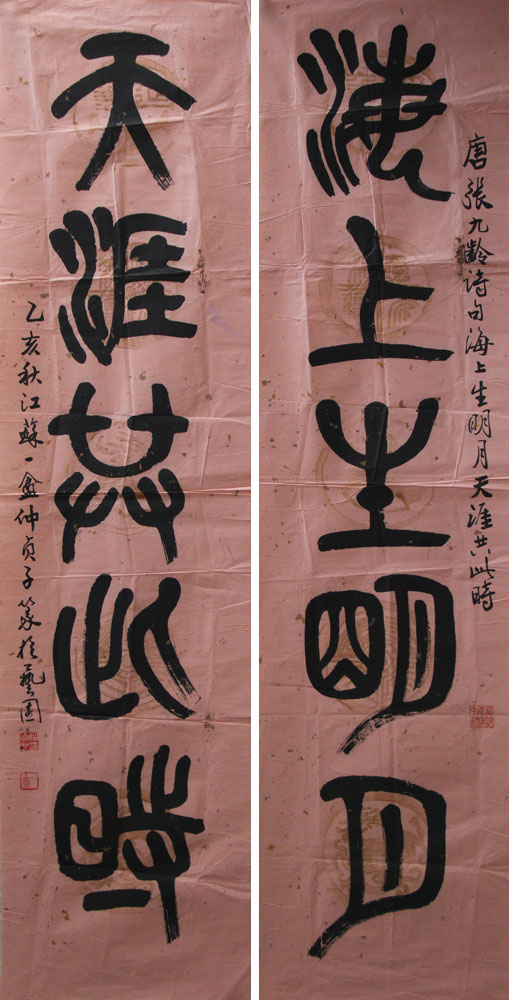 唐張九齡詩句海上生明月天涯共此時
海上生明月
天涯共此時
乙亥秋江蘇一盦仲貞子篆於藝園